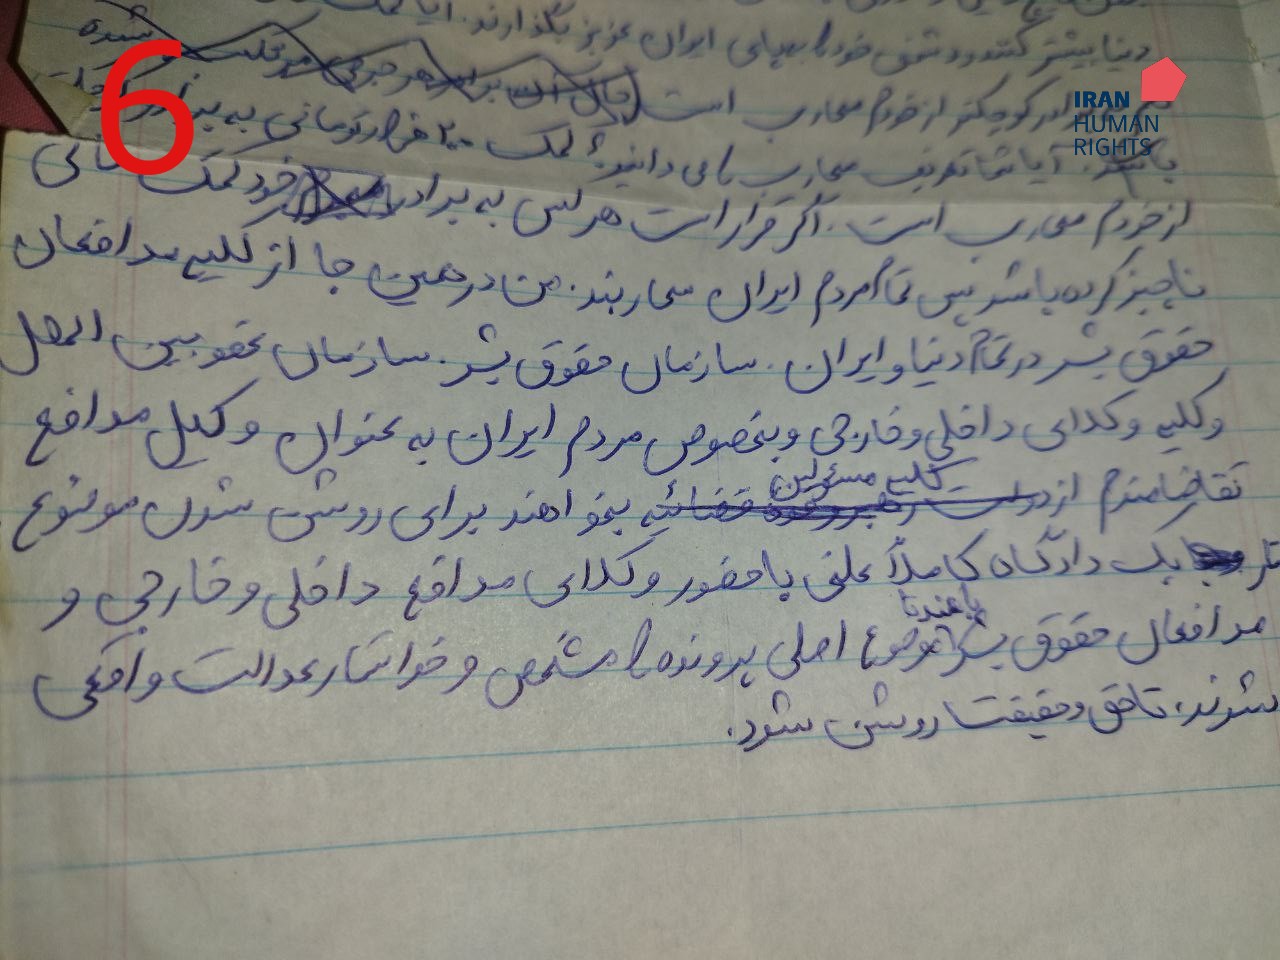 دنیا بیشتر کنند و دشمنی خود را بجای ایران عزیز بگذارند. آیا کمک
6
برادر کوچکتر از خودم محارب است
IRAN
HUMAN
RIGHTS
باشد. آیا شما تعریف محارب را می دانید؟ کمک ۲۰۰ هزار تومانی به برادر
از خودم محارب است. اگر قرار است هر کس به برادر خود کمک مالی
ناچیز کرده باشد پس تمام مردم ایران محاربند. من در همین جا از کلیه مدافعان
حقوق بشر در تمام دنیا و ایران. سازمان حقوق بشر. سازمان عفو بین الملل
و کلیه وکلای داخلی و خارجی و بخصوص مردم ایران به عنوان وکیل مدافع
تقاضامندم از کلیه مسئولین بخواهند برای روشن شدن موضوع
در یک دادگاه کاملاً علنی با حضور وکلای مدافع داخلی و خارجی و
مدافعان حقوق بشر باشند تا موضوع اصلی پرونده را مشخص و خواستار عدالت واقعی
شوند، تا حق و حقیقت روشن شود.